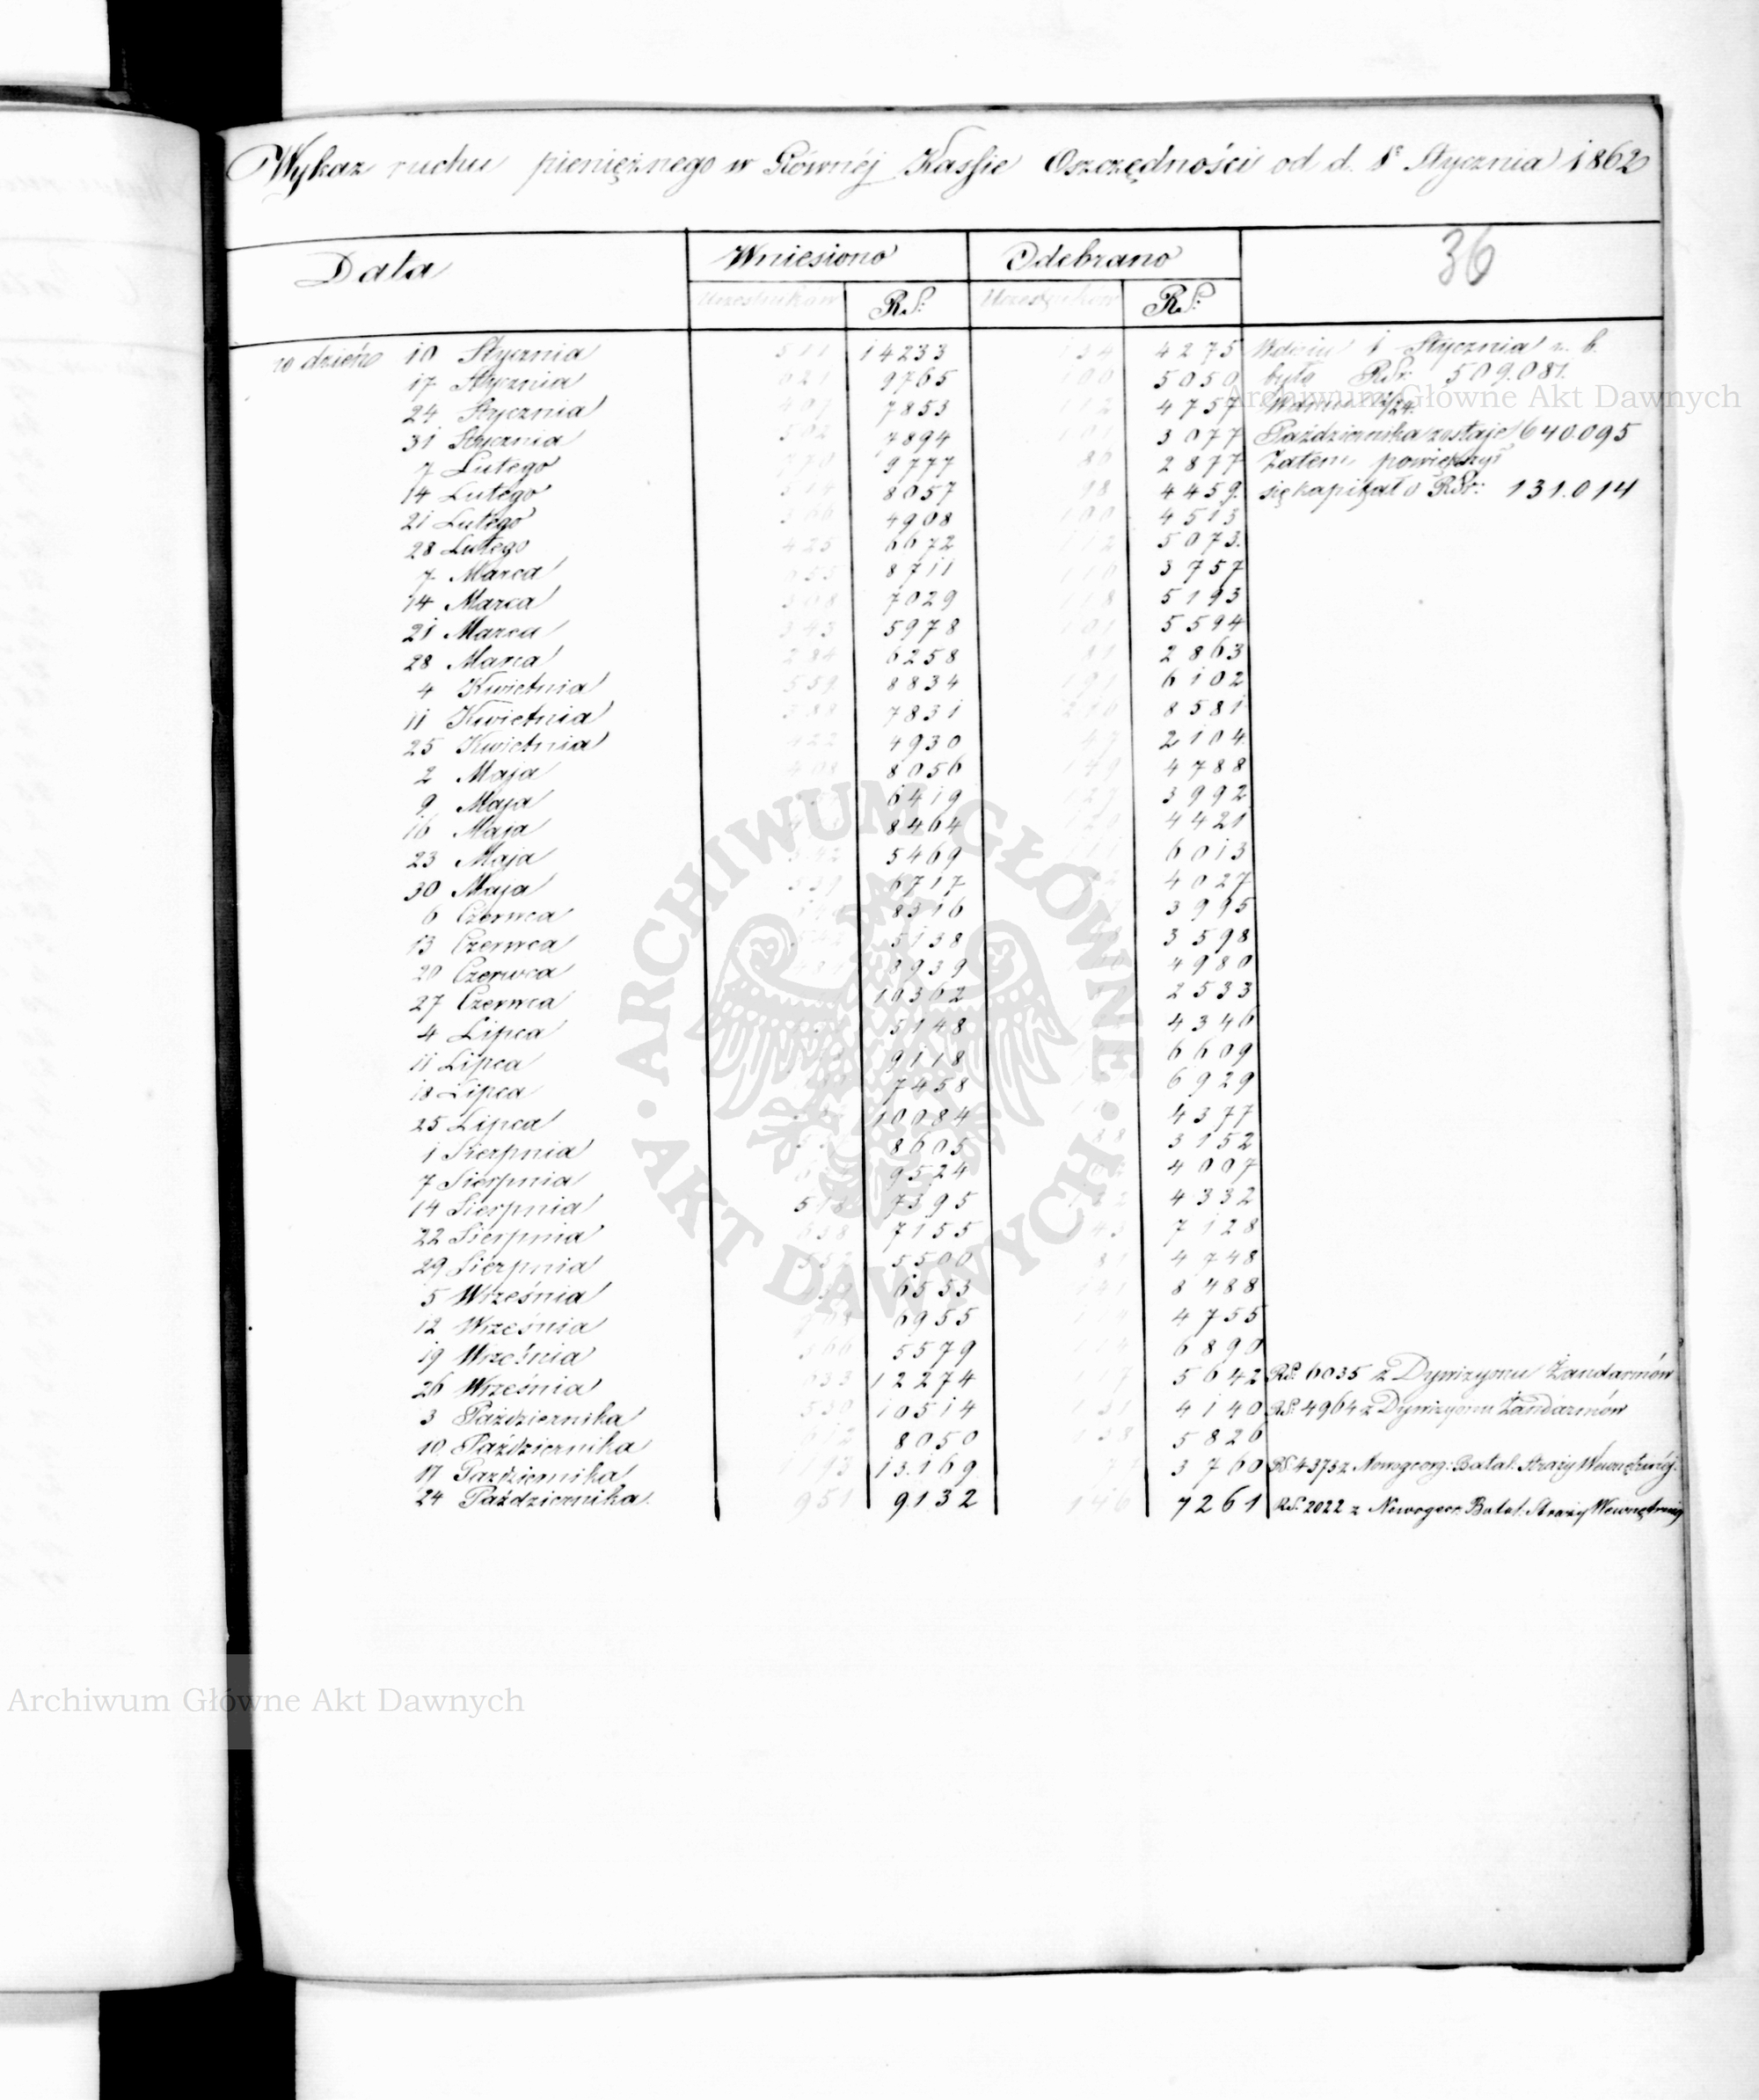 Wykaz ruchu pieniężnego w Głównéj Kassie Oszczędności od d. 1º Stycznia 1862
Data Wniesiono Odebrano 36
Uczestników R.S. Uczestników R.S.
w dzień 10 Stycznia 511 14233 134 4275 W dniu 1 Stycznia r. b.
17 Stycznia 621 9765 100 5050 było RSr. 509.081.
24 Stycznia 407 7853 112 4757 W dniu 24
31 Stycznia 502 7894 101 3077 Października zostaje 640.095
7 Lutego 9777 86 2877 Zatem powiększył
14 Lutego 514 8057 98 4459 się kapitał o RSr: 131.014
21 Lutego 366 4908 100 4513
28 Lutego 425 6672 112 5073.
7 Marca 8711 116 3757
14 Marca 308 7029 118 5193
21 Marca 343 5978 101 5594
28 Marca 284 6258 81 2863
4 Kwietnia 559 8834 191 6102
11 Kwietnia 388 7831 8581
25 Kwietnia 422 4930 47 2104.
2 Maja 408 8056 149 4788
9 Maja 6419 3992
16 Maja 8464 4421
23 Maja 5469 6013
30 Maja 6717 4027
6 Czerwca 8316 3995
13 Czerwca 5138 3598
20 Czerwca 8939 4980
27 Czerwca 16362 2533
4 Lipca 5148 4346
11 Lipca 9118 6609
18 Lipca 7458 6929
25 Lipca 10084 4377
1 Sierpnia 8605 3152
7 Sierpnia 9524 4007
14 Sierpnia 518 7395 132 4332
22 Sierpnia 638 7155 143 7128
29 Sierpnia 532 5500 81 4748
5 Września 6553 141 8488
12 Września 6955 4755
19 Września 366 5579 114 6890
26 Września 633 12274 5642 RS. 6035 z Dywizyonu Żandarmów
3 Października 530 10514 131 4140 RS. 4964 z Dywizyonu Żandarmów
10 Października 612 8050 138 5826
17 Października 13.169 3760 RS. 4373 z Nowogeorg: Batal. Straży Wewnętrznéj.
24 Października. 951 9132 146 7261 RS. 2022 z Nowogeor. Batal. Straży Wewnętrznej
Archiwum Główne Akt Dawnych
ARCHIWUM GŁÓWNE AKT DAWNYCH
Archiwum Główne Akt Dawnych